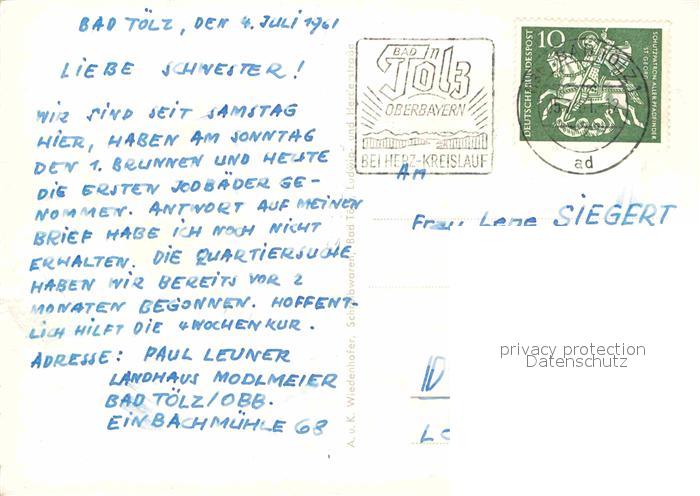 BAD TÖLZ, DEN 4. JULI 1961
LIEBE SCHWESTER!
WIR SIND SEIT SAMSTAG
HIER, HABEN AM SONNTAG
DEN 1. BRUNNEN UND HEUTE
DIE ERSTEN JODBÄDER GE-
NOMMEN. ANTWORT AUF MEINEN
BRIEF HABE ICH NOCH NICHT
ERHALTEN. DIE QUARTIERSUCHE
HABEN WIR BEREITS VOR 2
MONATEN BEGONNEN. HOFFENT-
LICH HILFT DIE 4WOCHENKUR.
ADRESSE: PAUL LEUNER
LANDHAUS MODLMEIER
BAD TÖLZ/OBB.
EINBACHMÜHLE 68
A. u. K. Wiedenhofer, Schreibwaren, Bad Tölz, Ludwig-
BAD
Tölz
OBERBAYERN
BEI HERZ-KREISLAUF
10
DEUTSCHE BUNDESPOST
ST. GEORG
SCHUTZPATRON ALLER PFADFINDER
BAD TÖLZ
ad
An
Frau Lene SIEGERT
privacy protection
Datenschutz